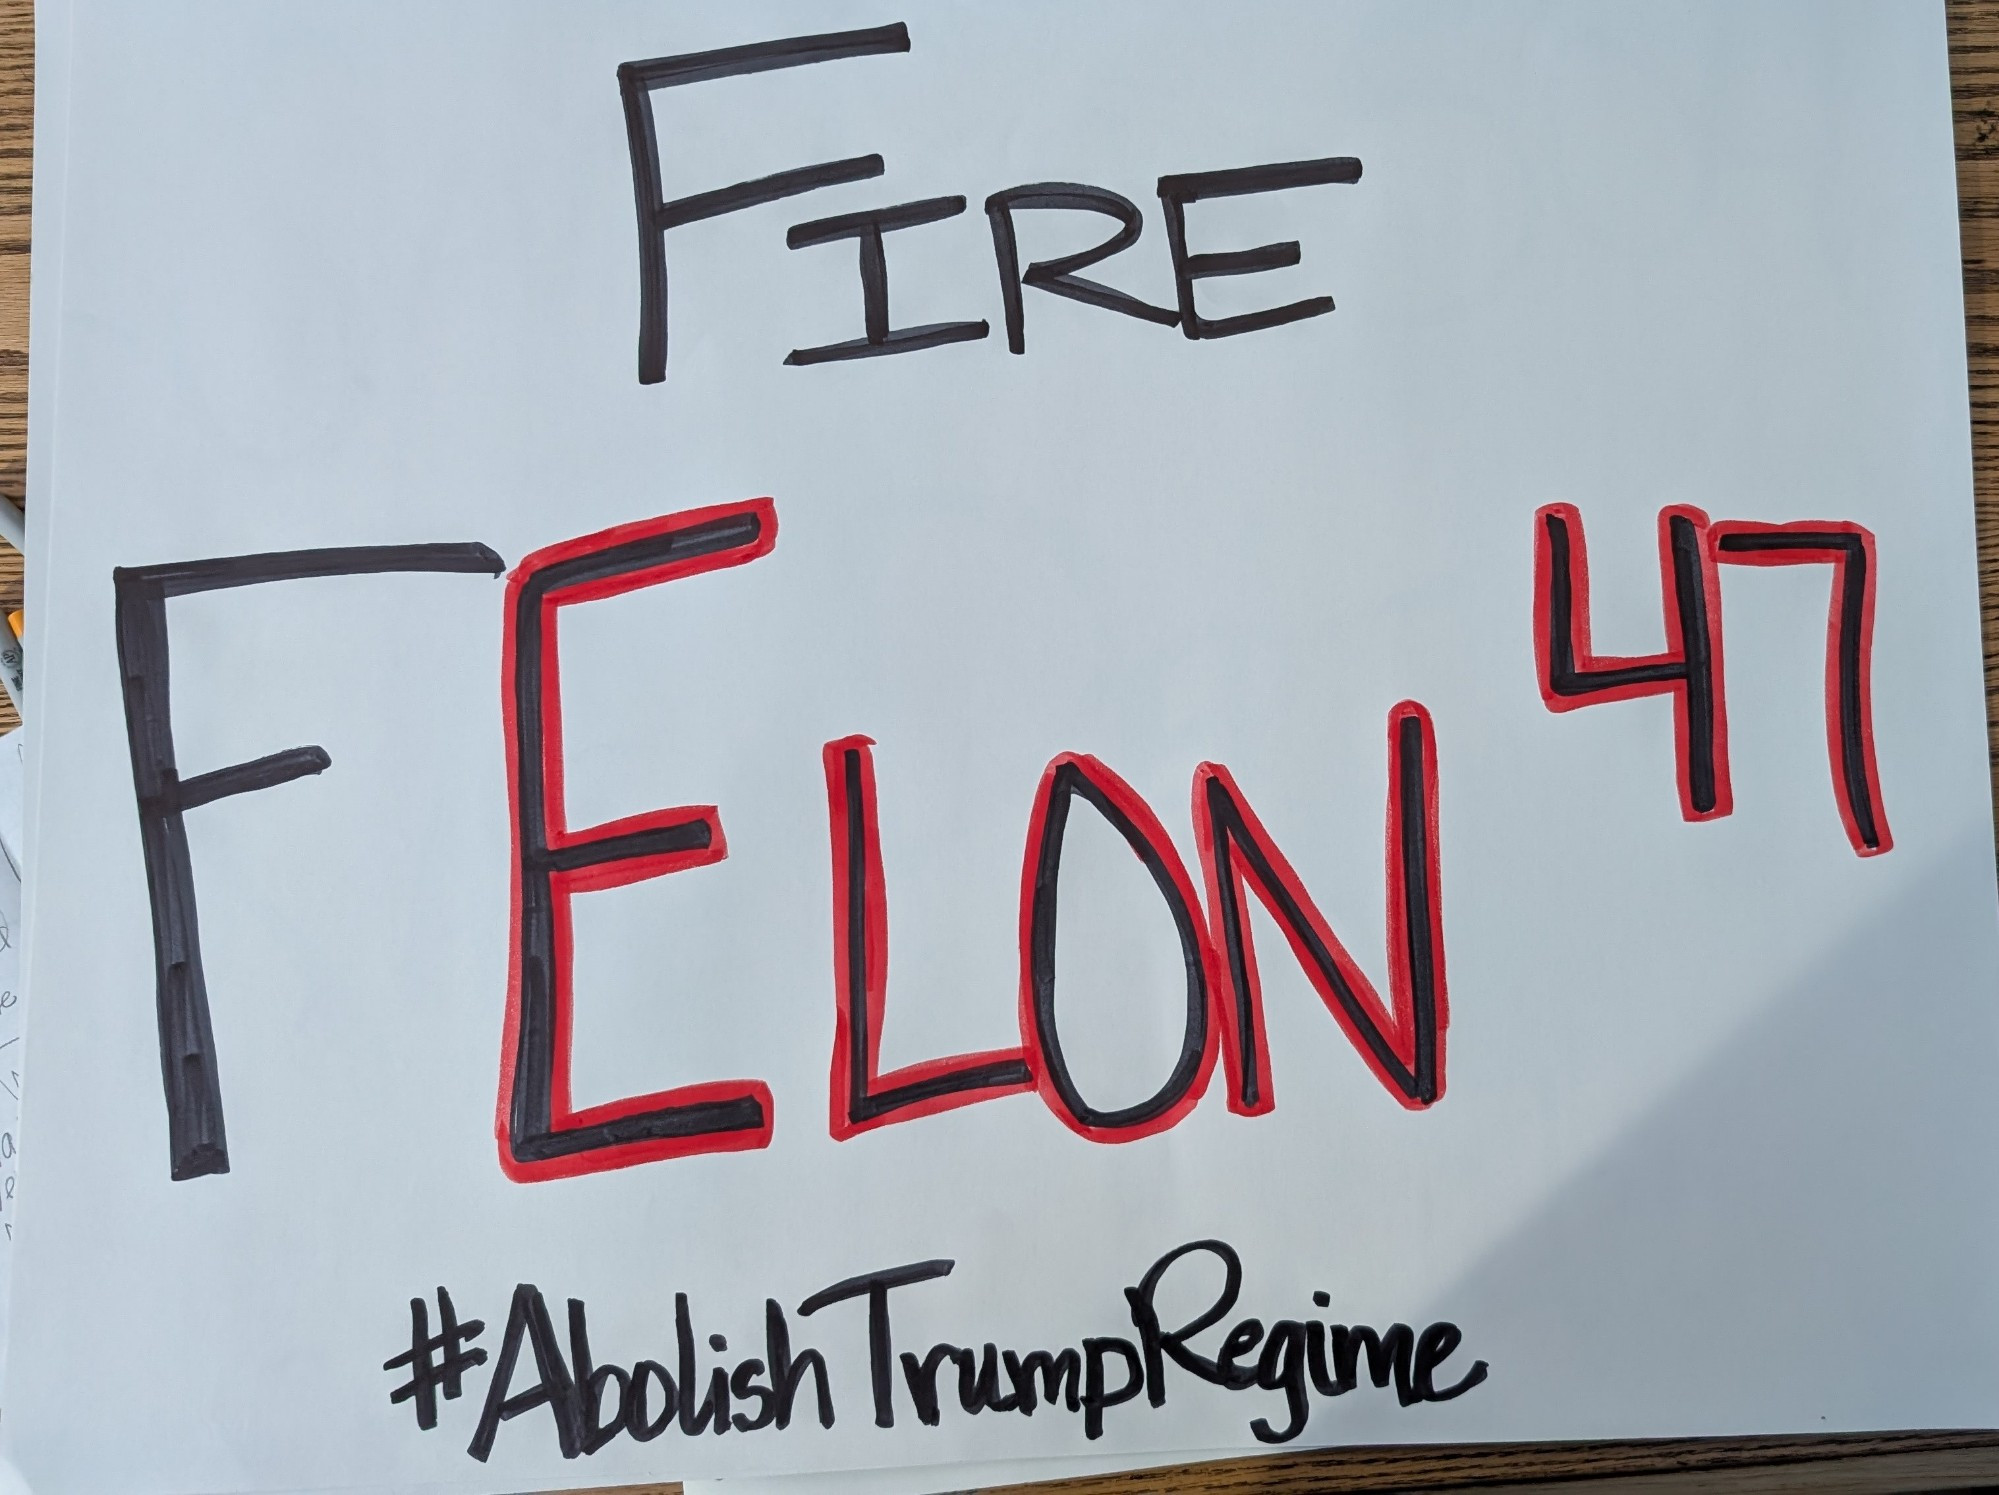 FIRE
FELON 47
#AbolishTrumpRegime